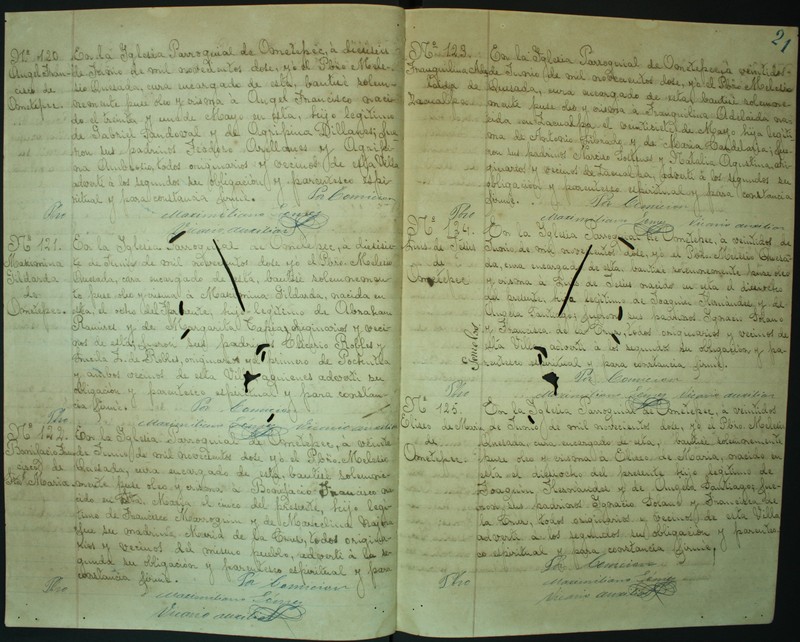 Nº 120.
Angel Fran-
cisco de
Ometepec.
En la Iglesia Parroquial de Ometepec, a dieciseis
de Junio de mil novecientos doce, yo el Pbro. Mele-
cio Quesada, cura encargado de esta, bauticé solem-
nemente puse oleo y crisma a Angel Francisco naci-
do el treinta y uno de Mayo en esta, hijo legítimo
de Gabriel Sandoval y de Agripina Villafasi, fue-
ron sus padrinos Teodoro Arellanes y Agripi-
na todos originarios y vecinos de esta Villa
advertí á los segundos su obligación y parentesco espi-
ritual y para constancia firmé.
Por Comicion
Pbro Maximiliano Gómez
Vicario auxiliar
Nº 121.
Maximina
Gildarda
de
Ometepec.
En la Iglesia Parroquial de Ometepec, a dieciseis
de Junio de mil novecientos doce yo el Pbro. Melecio
Quesada, cura encargado de esta, bauticé solemnemen-
te puse oleo y crisma á Maximina Gildarda, nacida en
esta, el ocho del hija legítima de Abraham
Ramirez y de Margarita Tapia, originarios y veci-
nos de esta, fueron sus padrinos Eleuterio Robles y
de Robles, originario el primero de
y ambos vecinos de esta Villa, a quienes advertí su
obligacion y parentesco espiritual y para constan-
cia firmé.
Por Comicion
Pbro Maximiliano Gómez Vicario auxiliar
Nº 122.
Bonifacio Fran-
cisco de
Sta. Maria.
En la Iglesia Parroquial de Ometepec, a veinte
de Junio de mil novecientos doce, yo el Pbro. Melecio
Quesada, cura encargado de esta, bauticé solemne-
mente puse oleo y crisma á Bonifacio Francisco na-
cido en Sta. Maria el cinco del presente, hijo legi-
timo de Francisco y de Marcelina
fue su madrina Maria de la Cruz, todos origina-
rios y vecinos del mismo pueblo, advertí á la se-
gunda su obligacion y parentesco espiritual y para
constancia firmé.
Por Comicion
Pbro Maximiliano Gómez
Vicario auxiliar
21
Nº 123.
Tranquilina Ade-
laida de
En la Iglesia Parroquial de Ometepec, a veintidos
de Junio de mil novecientos doce, yo el Pbro. Melecio
Quesada, cura encargado de esta, bauticé solemne-
mente puse oleo y crisma a Tranquilina Adelaida na-
cida en el veintisiete de Mayo, hija legiti-
ma de Antonio y de Maria fue-
ron sus padrinos Narciso y Natalia Agustina, ori-
ginarios y vecinos de advertí á los segundos su
obligacion y parentesco espiritual y para constancia
firmé.
Por Comicion
Pbro Maximiliano Gómez Vicario auxiliar
Nº 124.
Eliseo de Jesus
de
Ometepec.
En la Iglesia Parroquial de Ometepec, a veintidos de
Junio de mil novecientos doce, yo el Pbro. Melecio Quesa-
da, cura encargado de esta, bauticé solemnemente puse oleo
y crisma á Eliseo de Jesus nacido en esta el dieciocho
del presente, hijo legítimo de Joaquin Hernandez y de
Angela Santiago, fueron sus padrinos Ignacio Solano
y Francisca de la Cruz, todos originarios y vecinos de
esta Villa, advertí a los segundos su obligacion, y pa-
rentesco espiritual y para constancia firmé.
Por Comicion
Pbro Maximiliano Gómez Vicario auxiliar
Nº 125.
Eliseo de Maria
de
Ometepec.
En la Iglesia Parroquial de Ometepec, a veintidos
de Junio de mil novecientos doce, yo el Pbro. Melecio
Quesada, cura encargado de esta, bauticé solemnemente
puse oleo y crisma á Eliseo de Maria, nacido en
esta el dieciocho del presente hijo legítimo de
Joaquin Hernandez y de Angela Santiago, fue-
ron sus padrinos Ignacio Solano y Francisca de
la Cruz, todos originarios y vecinos de esta Villa
advertí á los segundos su obligacion y parentes-
co espiritual y para constancia firmé,
Por Comicion
Pbro Maximiliano Gómez
Vicario auxiliar